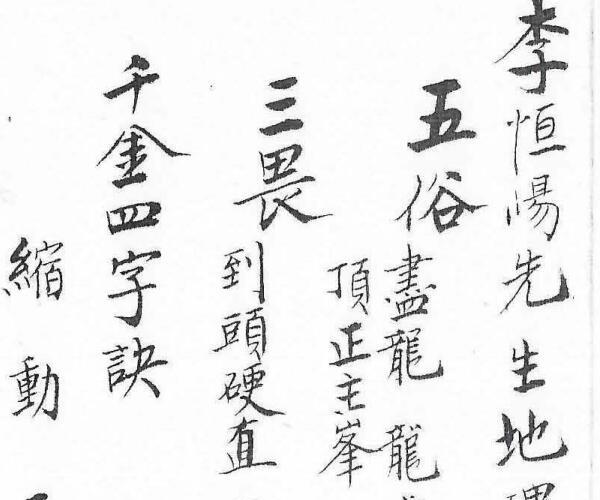 李恒陽先生地理
五俗
盡龍 龍
頂正主峯
三畏
到頭硬直
千金四字訣
縮 動